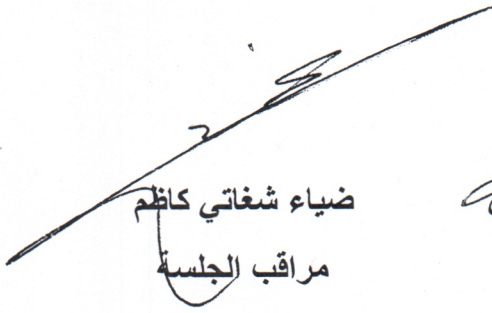 ضياء شغاتي كاظم
مراقب الجلسة